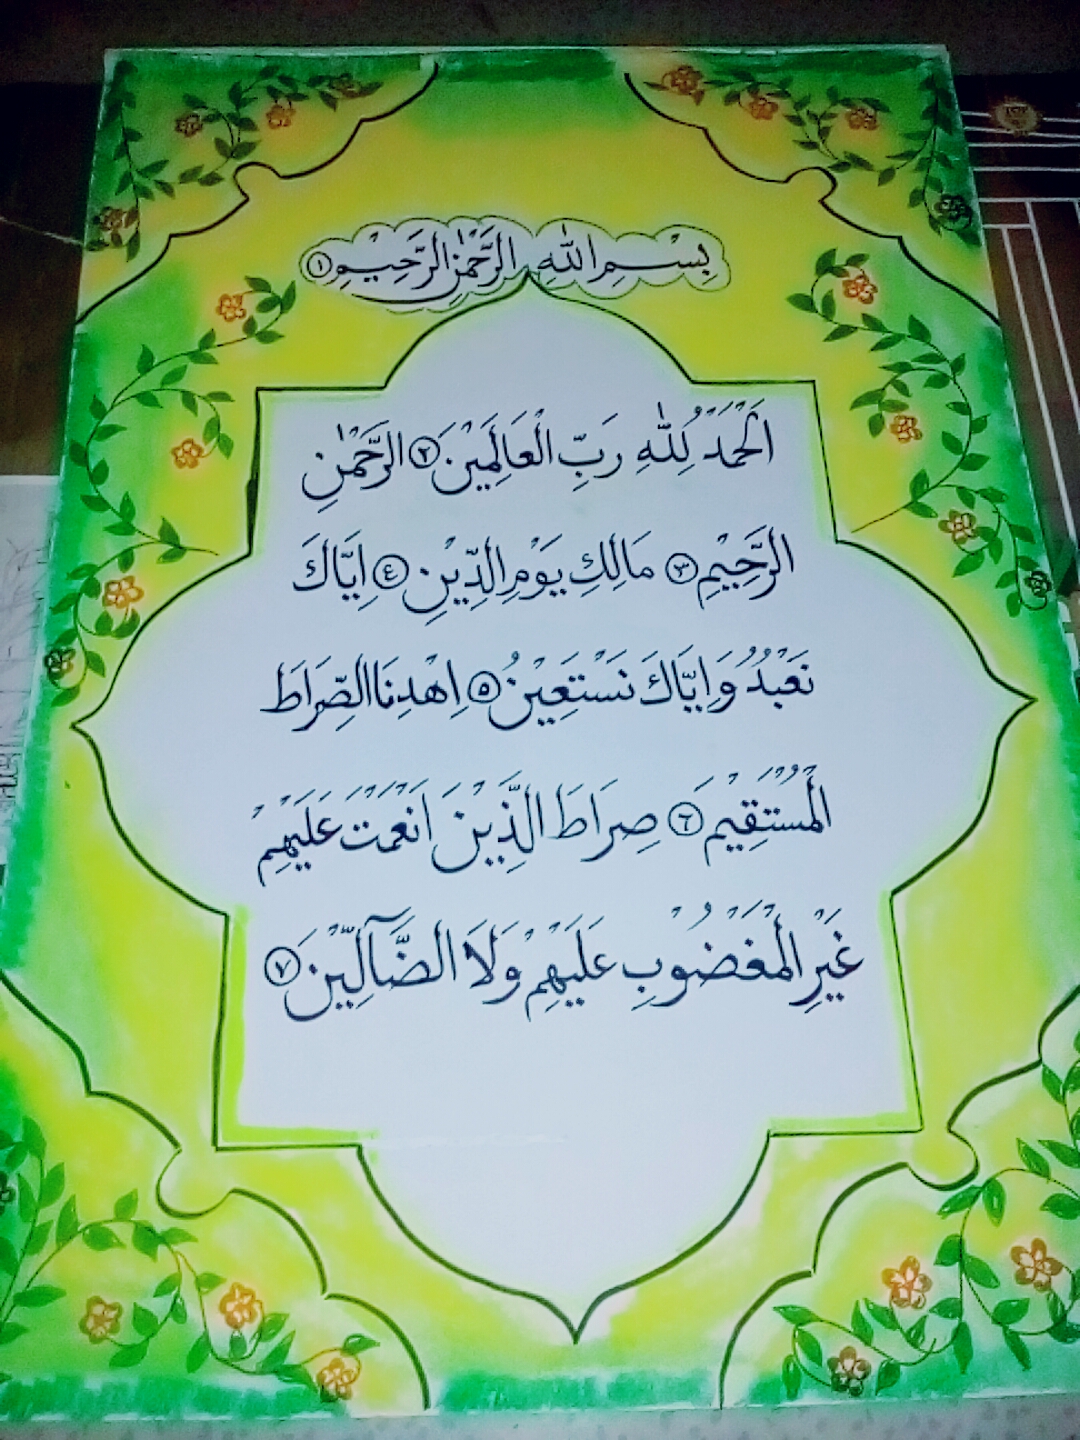 بِسْمِ اللّٰهِ الرَّحْمٰنِ الرَّحِيْمِ ١
اَلْحَمْدُ لِلّٰهِ رَبِّ الْعَالَمِيْنَ ٢ الرَّحْمٰنِ
الرَّحِيْمِ ٣ مَالِكِ يَوْمِ الدِّيْنِ ٤ اِيَّاكَ
نَعْبُدُ وَاِيَّاكَ نَسْتَعِيْنُ ٥ اِهْدِنَا الصِّرَاطَ
الْمُسْتَقِيْمَ ٦ صِرَاطَ الَّذِيْنَ اَنْعَمْتَ عَلَيْهِمْ
غَيْرِ الْمَغْضُوْبِ عَلَيْهِمْ وَلَا الضَّآلِّيْنَ ٧